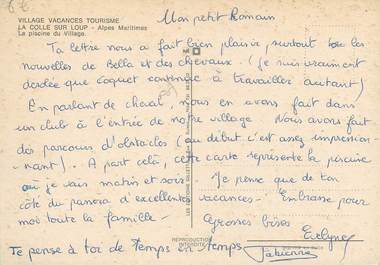 VILLAGE VACANCES TOURISME
LA COLLE SUR LOUP - Alpes Maritimes
La piscine du Village.
Mon petit Romain
Ta lettre nous a fait bien plaisir surtout les
nouvelles de Bella et des chevaux. (je suis vraiment
désolée que coquet continue à travailler autant)
En parlant de cheval, nous en avons fait dans
un club à l'entrée de notre village. Nous avons fait
des parcours d'obstacles (au début c'est assez impression-
nant!.. A part celà, cette carte représente la piscine
où je vais matin et soir. Je pense que de ton
côté du passera d'excellentes vacances. Embrasse pour
moi toute la famille -
Grosses bises Evelyne
REPRODUCTION
INTERDITE
Je pense à toi de temps en temps
Fabienne